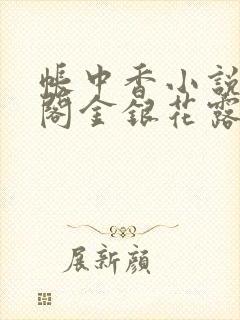 帳中香小說
閣金銀花露
展新顔